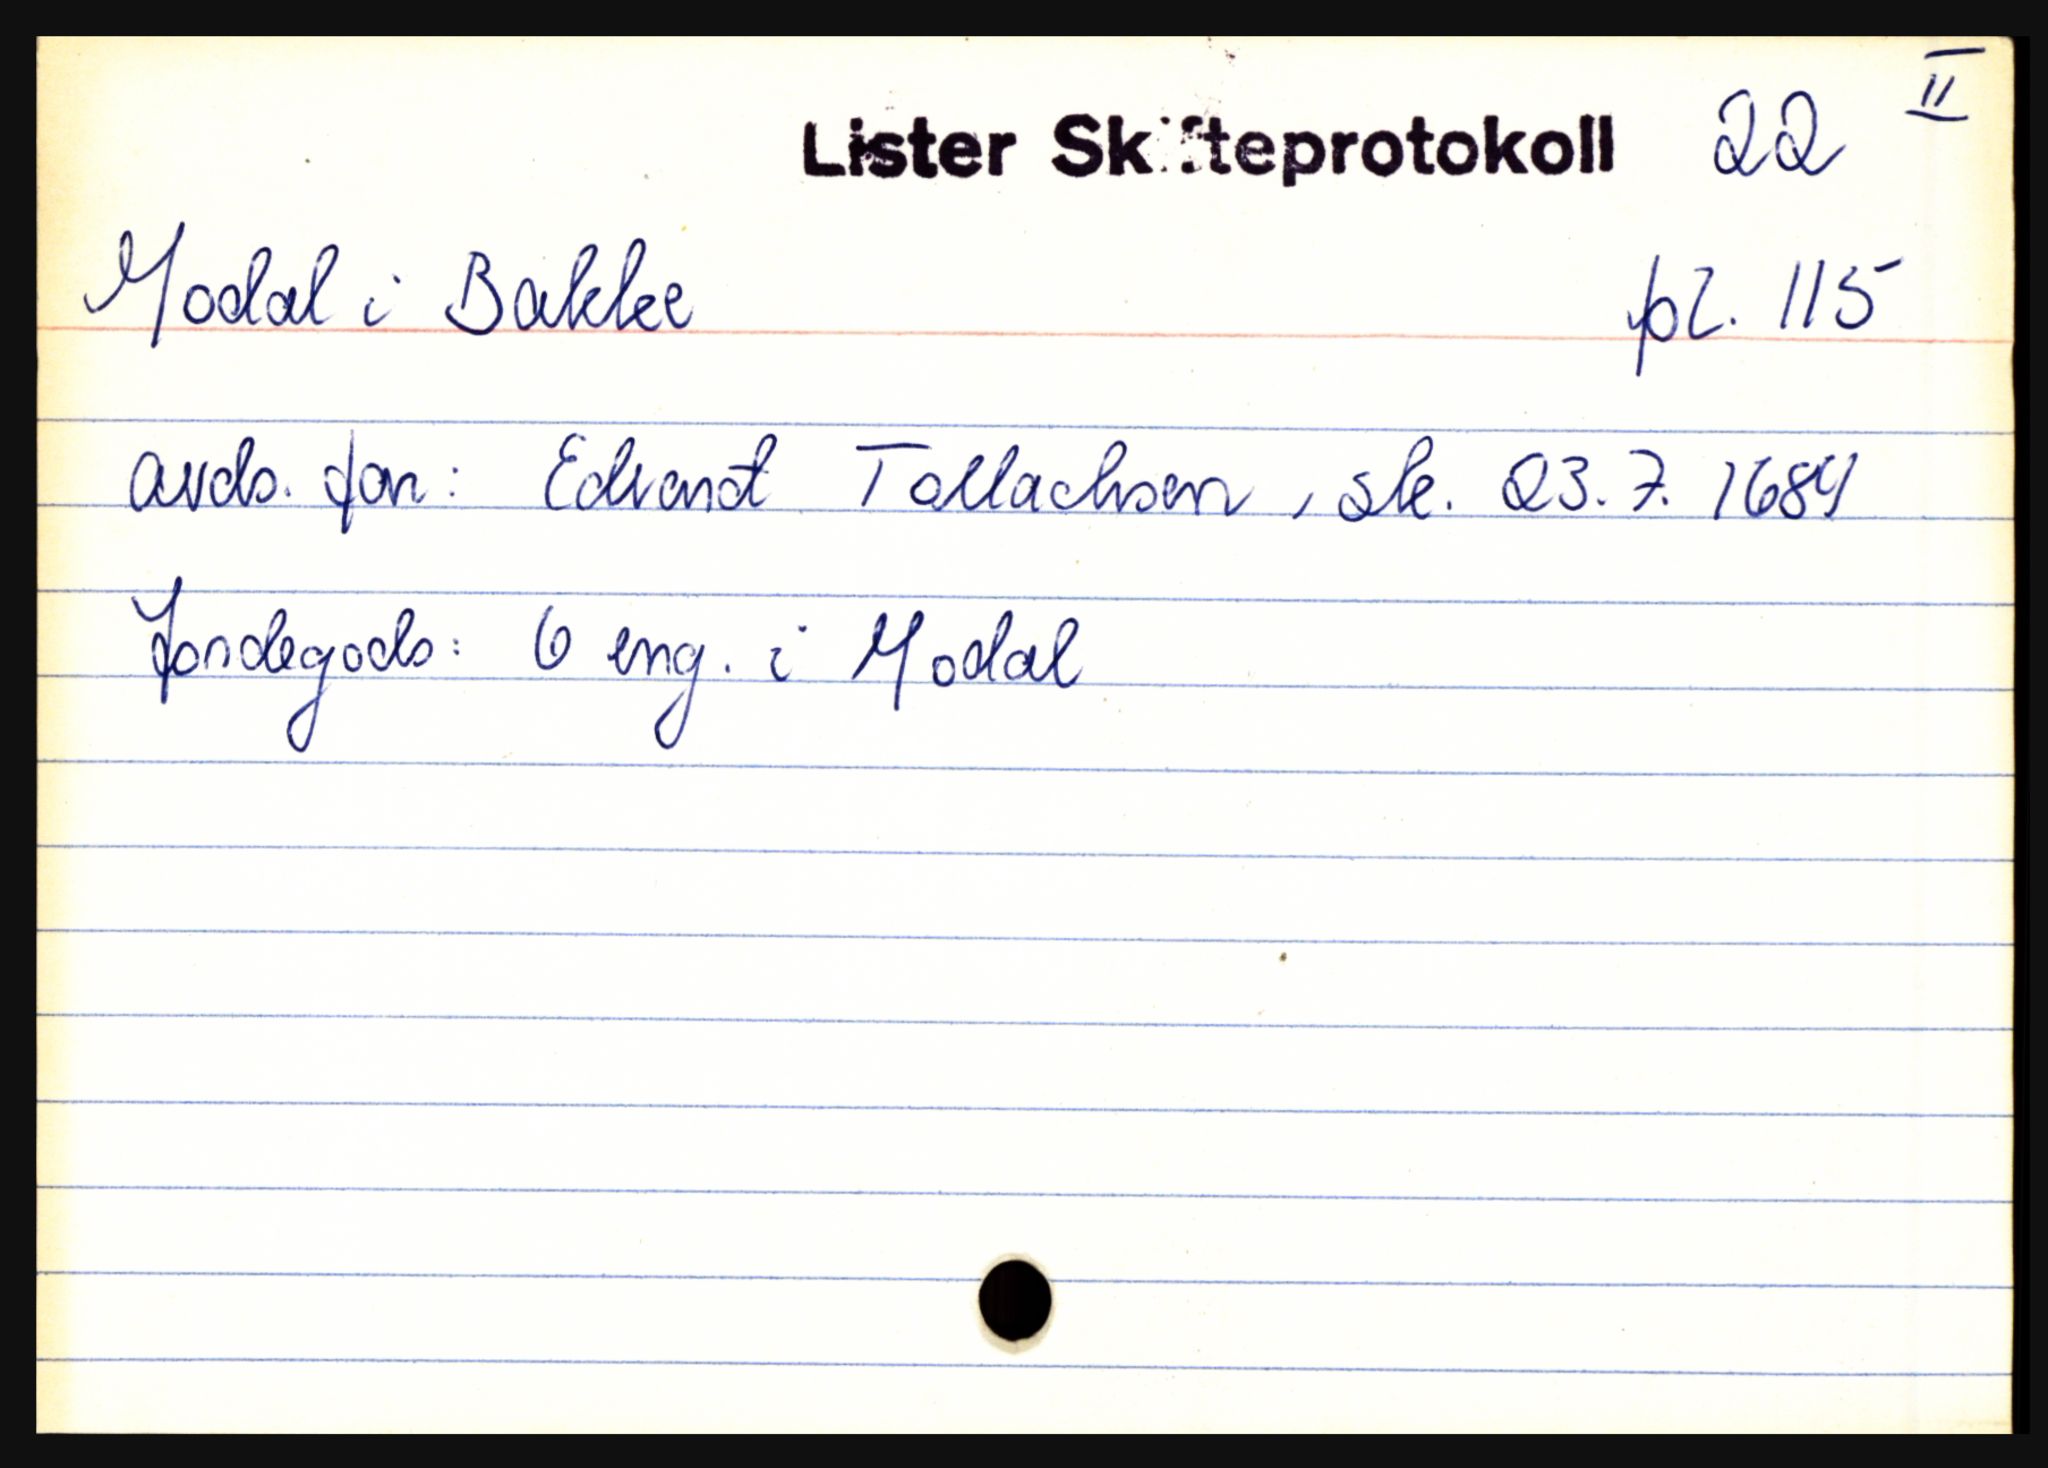 Lister Skifteprotokoll 22 II
Modal i Bakke pl. 115
avds. far: Edvart Tollachsen, sk. 23.7.1684
Jordegods: 6 eng. i Modal